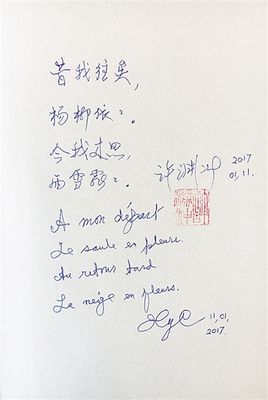 昔我往矣,
杨柳依:。
今我来思,
雨雪霏:。
许渊冲
2017
01,11.
A mon départ
Le saule en pleurs.
Au retour tard
La neige en fleurs.
XYC 11,01,
2017.